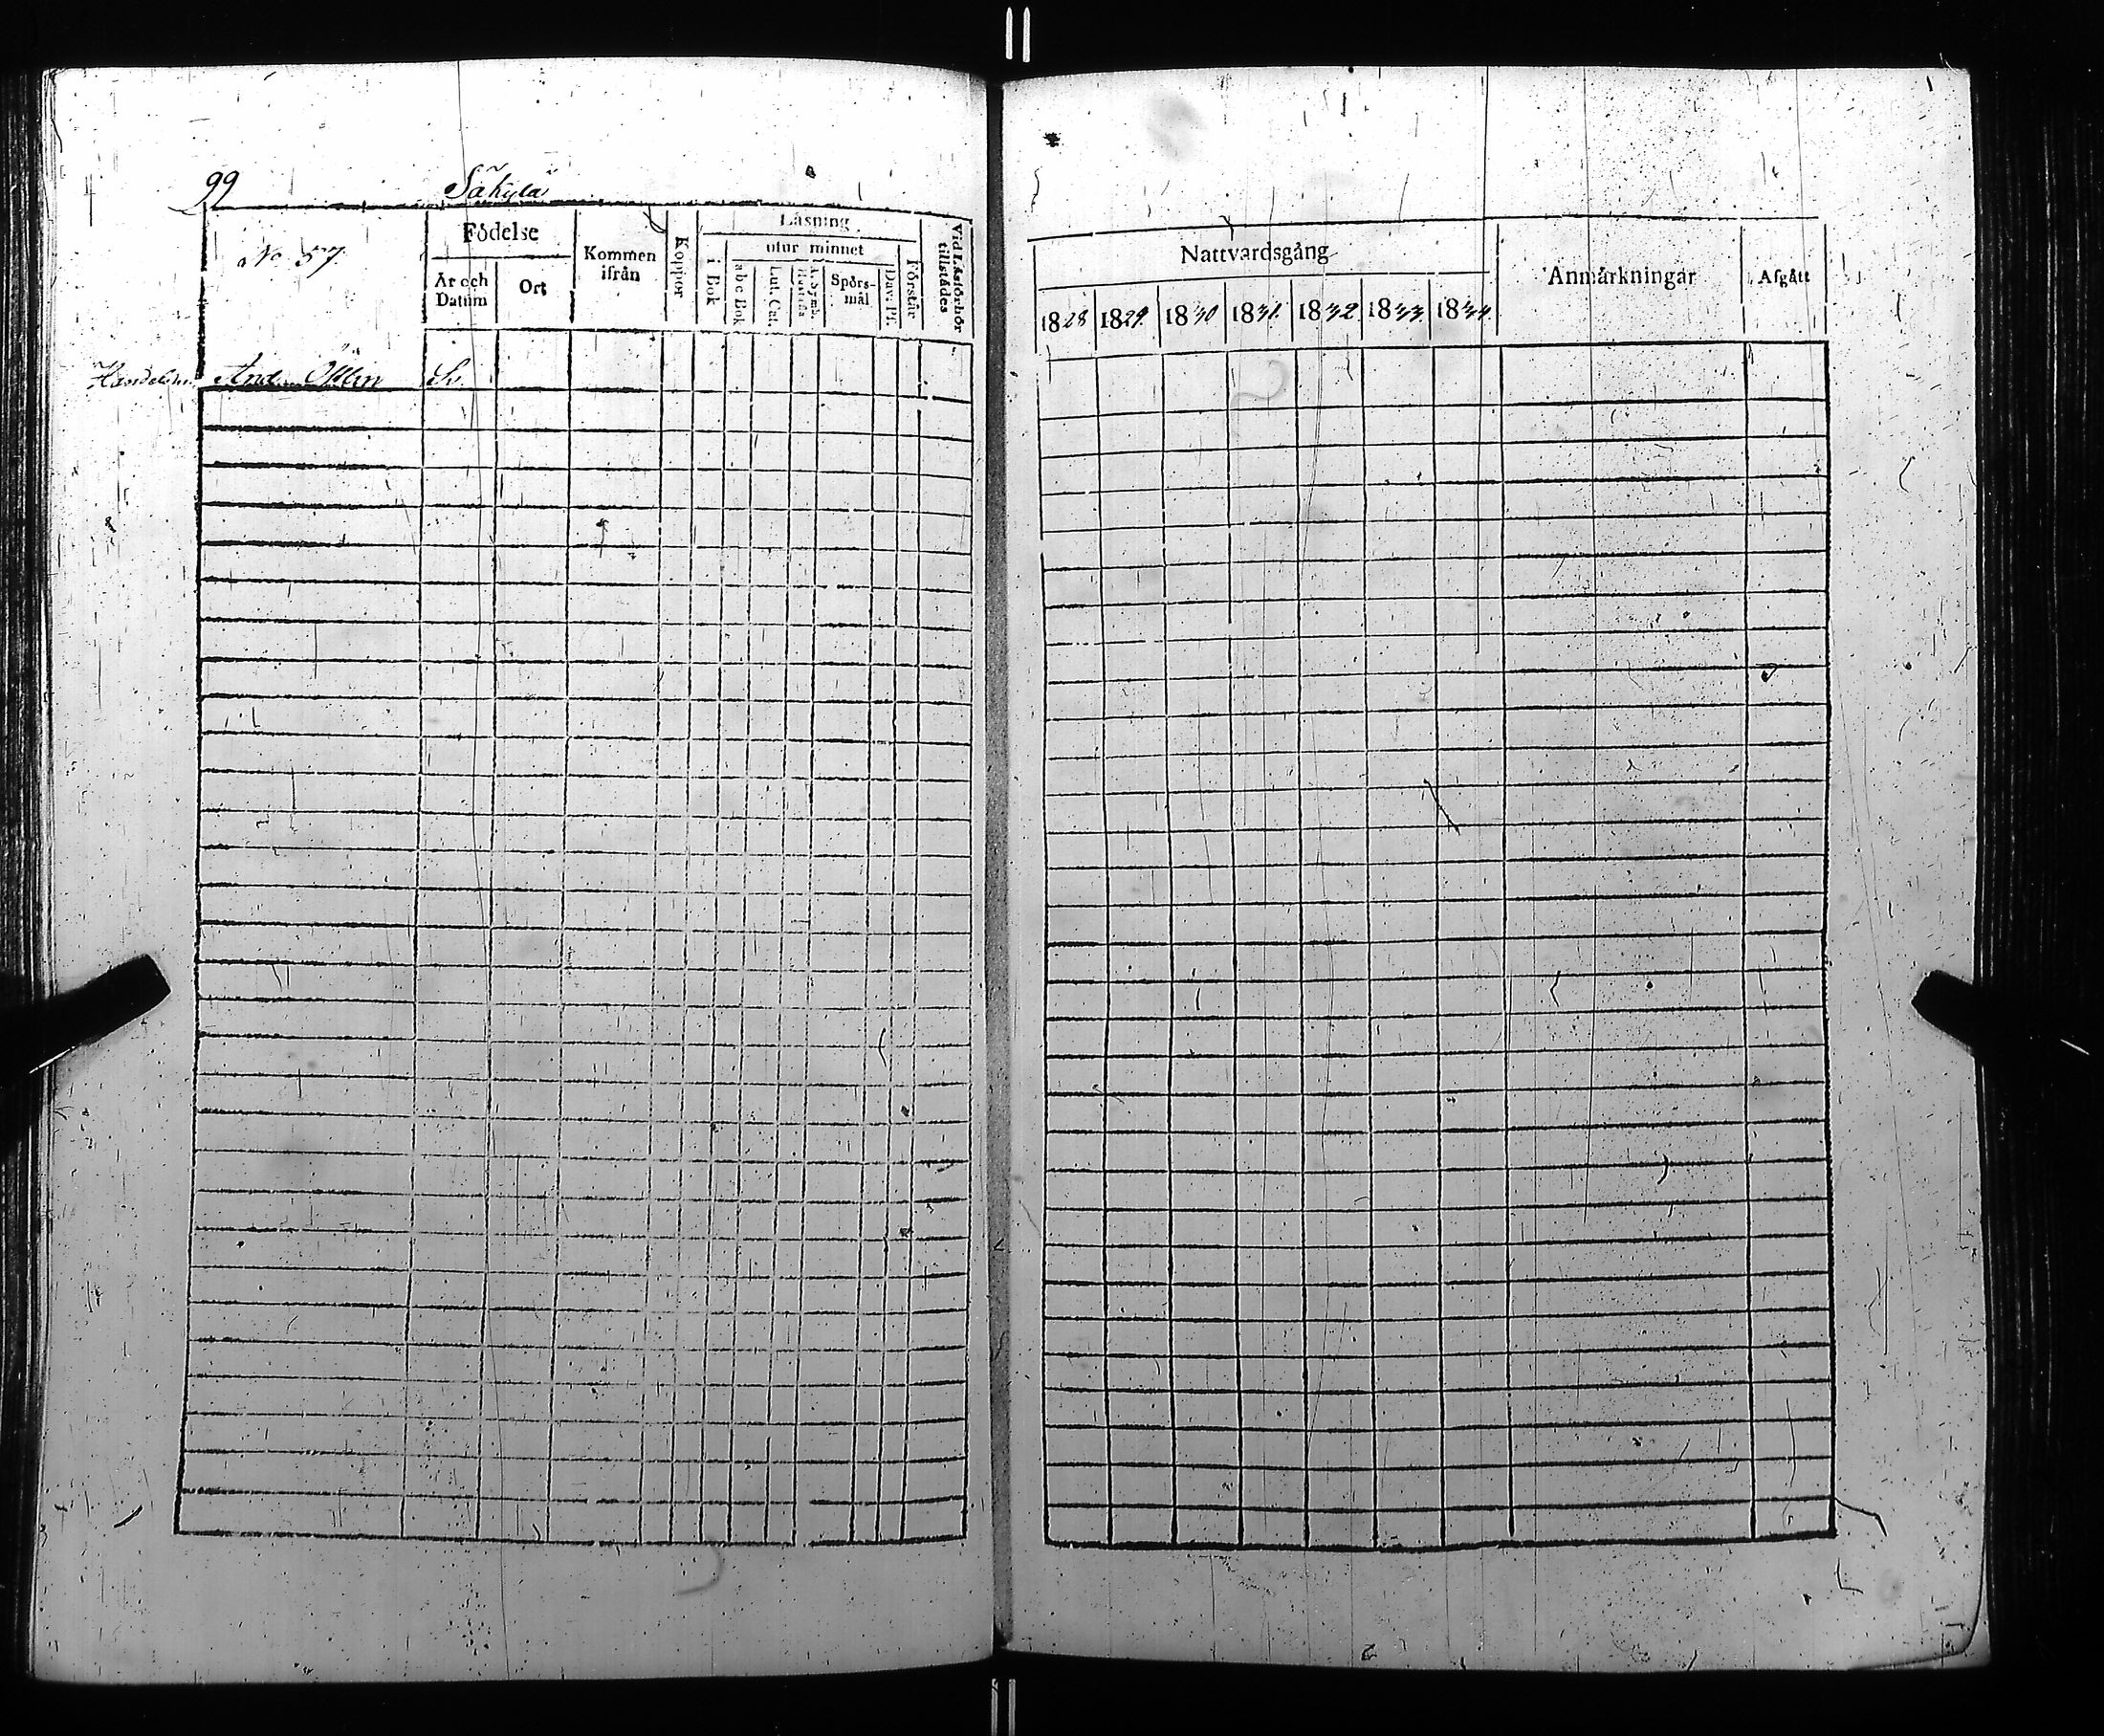 99 Säkylä
No 57.
Födelse
Kommen ifrån
Koppor
Läsning
i Bok
utur minnet
abc Bok
Lut. Cat.
Spörs-mål
Förstår
Vid Läsförhör tillstädes
År och Datum
Ort
Handelsm. And. Sv.
Nattvardsgång
Anmärkningar
Afgått
1828 1829. 1830 1831. 1832. 1833. 1834.